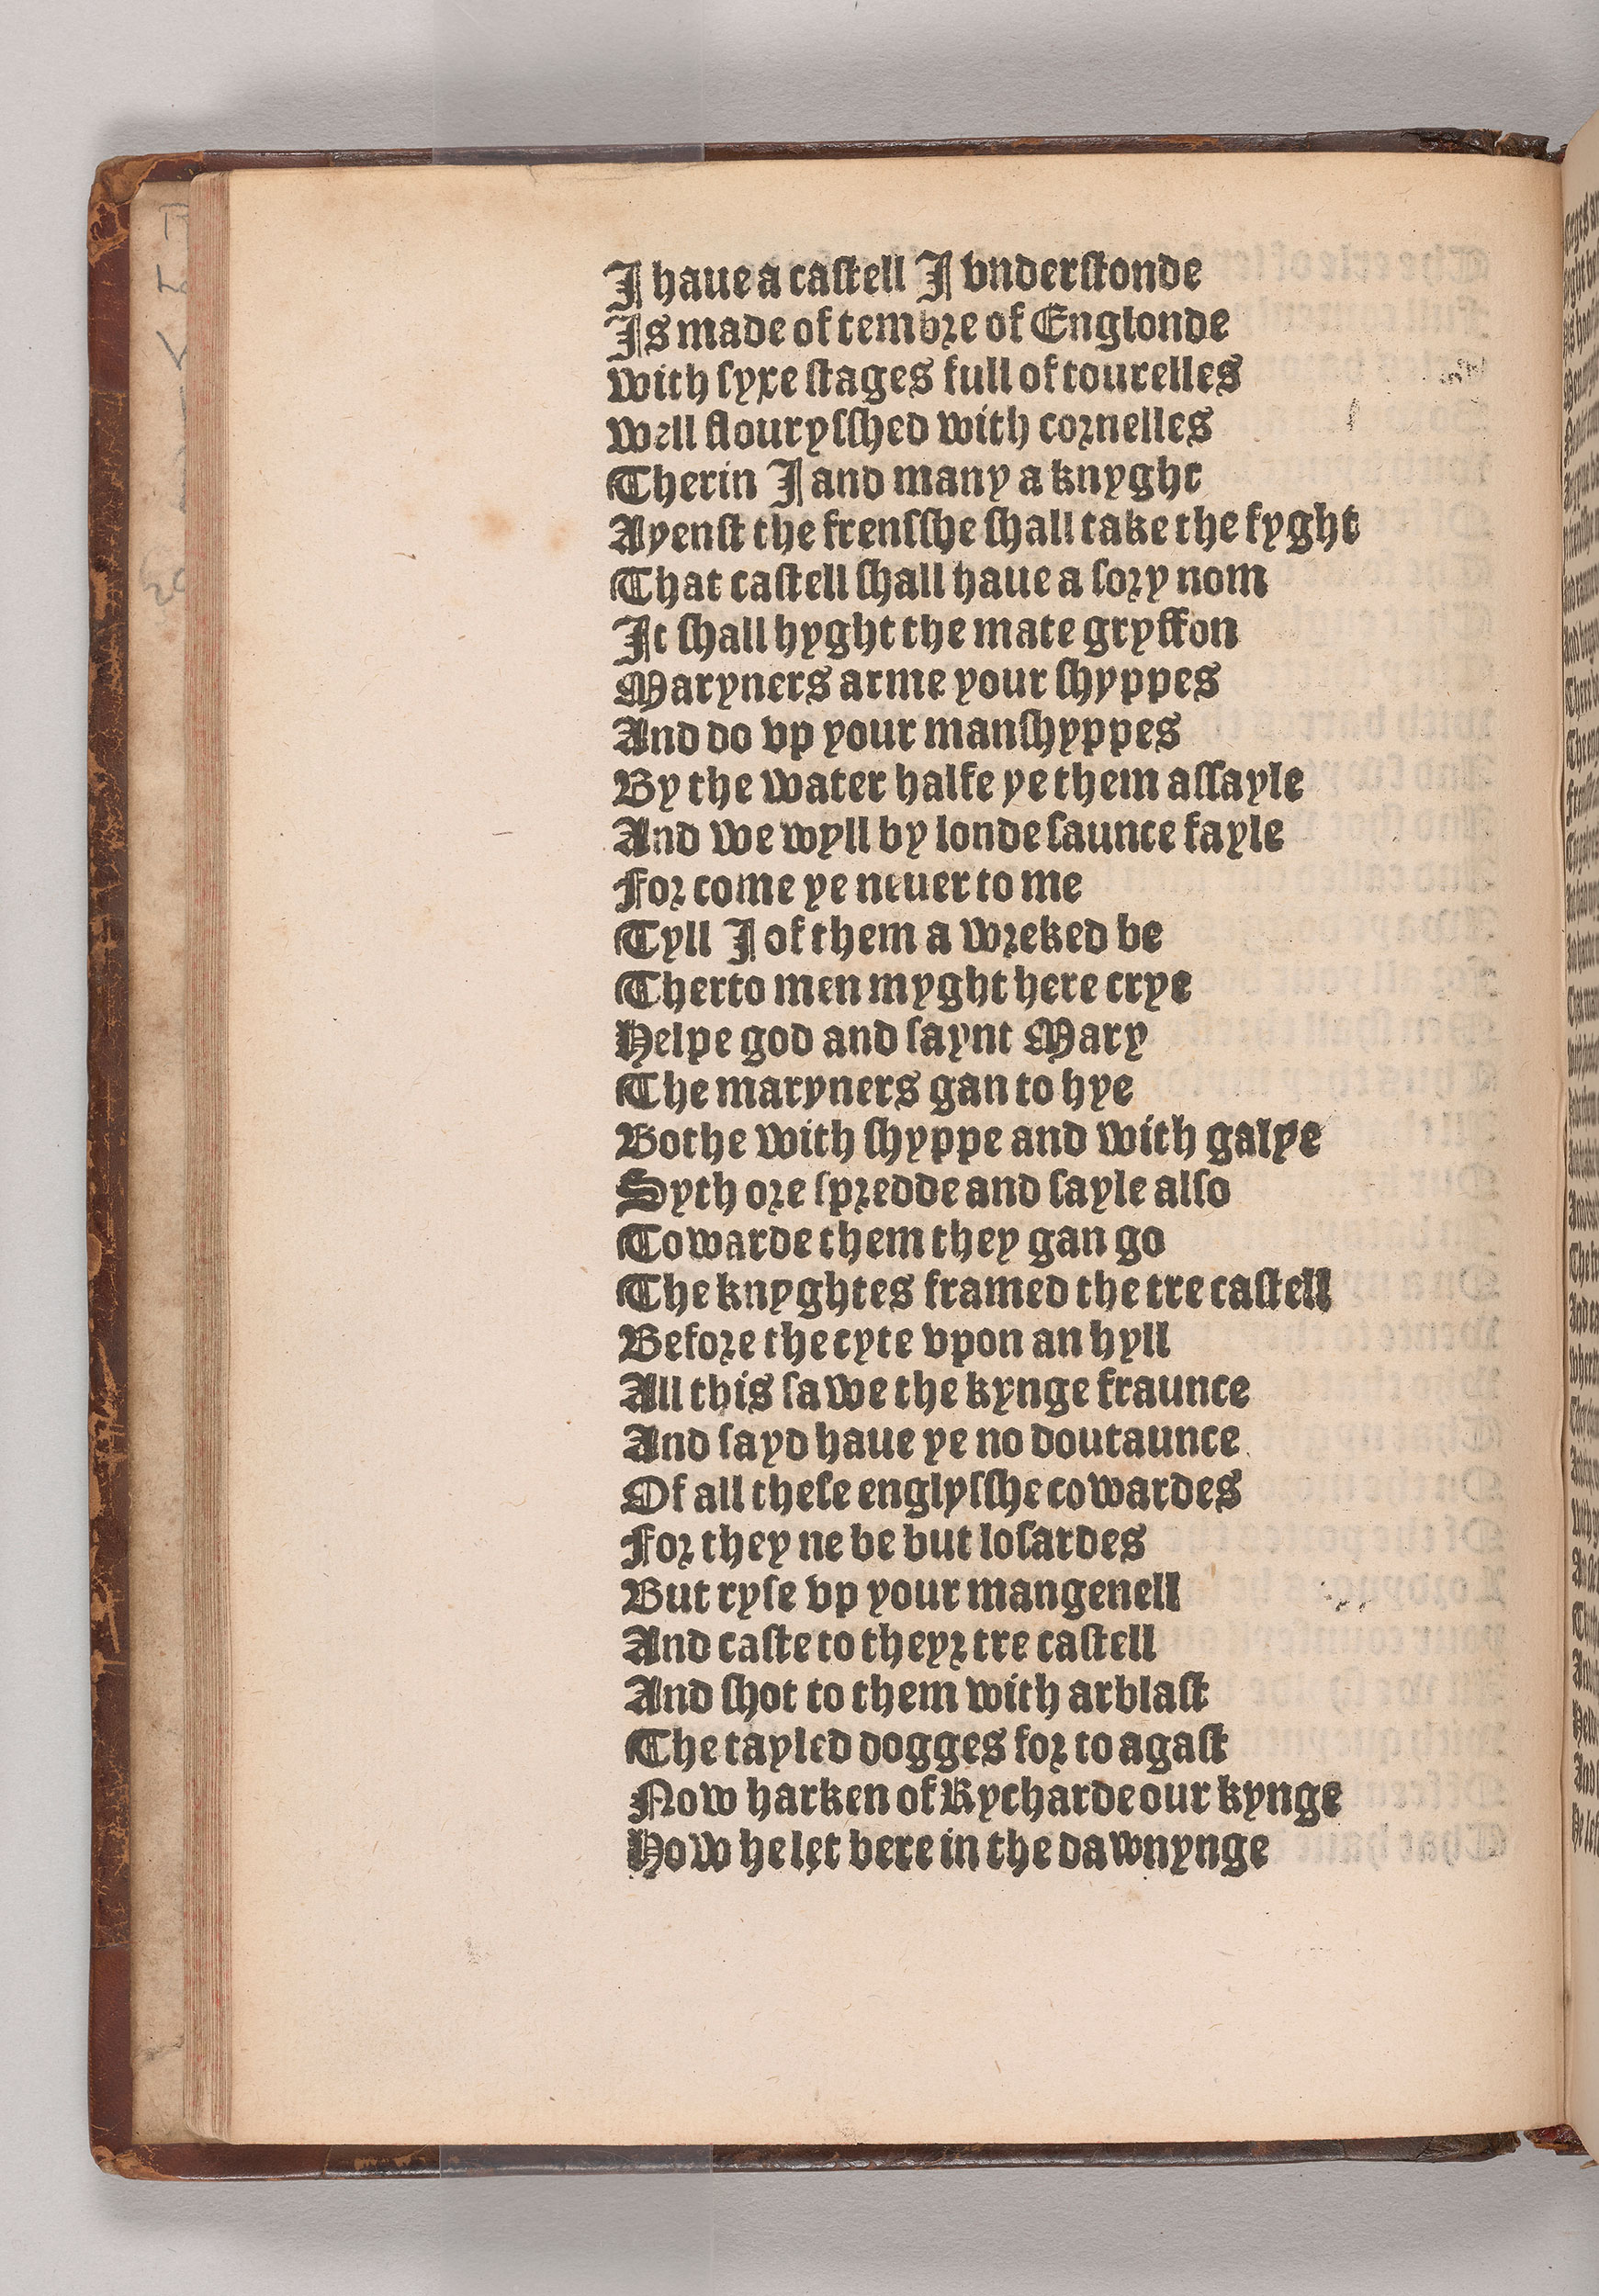 I haue a castell I vnderstonde
Is made of tembre of Englonde
With syxe stages full of tourelles
Well flourysshed with cornelles
Therin I and many a knyght
Ayenst the frensshe shall take the fyght
That castell shall haue a sory nom
It shall hyght the mate gryffon
Maryners arme your shyppes
And do vp your manshyppes
By the water halfe ye them assayle
And we wyll by londe saunce fayle
For come ye neuer to me
Tyll I of them a wreked be
Therto men myght here crye
Helpe god and saynt Mary
The maryners gan to hye
Bothe with shyppe and with galye
Syth ore spredde and sayle also
Towarde them they gan go
The knyghtes framed the tre castell
Before the cyte vpon an hyll
All this sawe the kynge fraunce
And sayd haue ye no doutaunce
Of all these englysshe cowardes
For they ne be but losardes
But ryse vp your mangenell
And caste to theyr tre castell
And shot to them with arblast
The tayled dogges for to agast
Now harken of Rycharde our kynge
How he let bere in the dawnynge